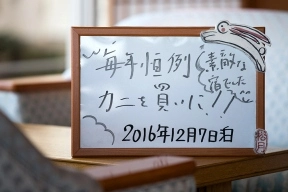 毎年恒例
素敵な
宿でした
カニを買いに!
2016年12月7日